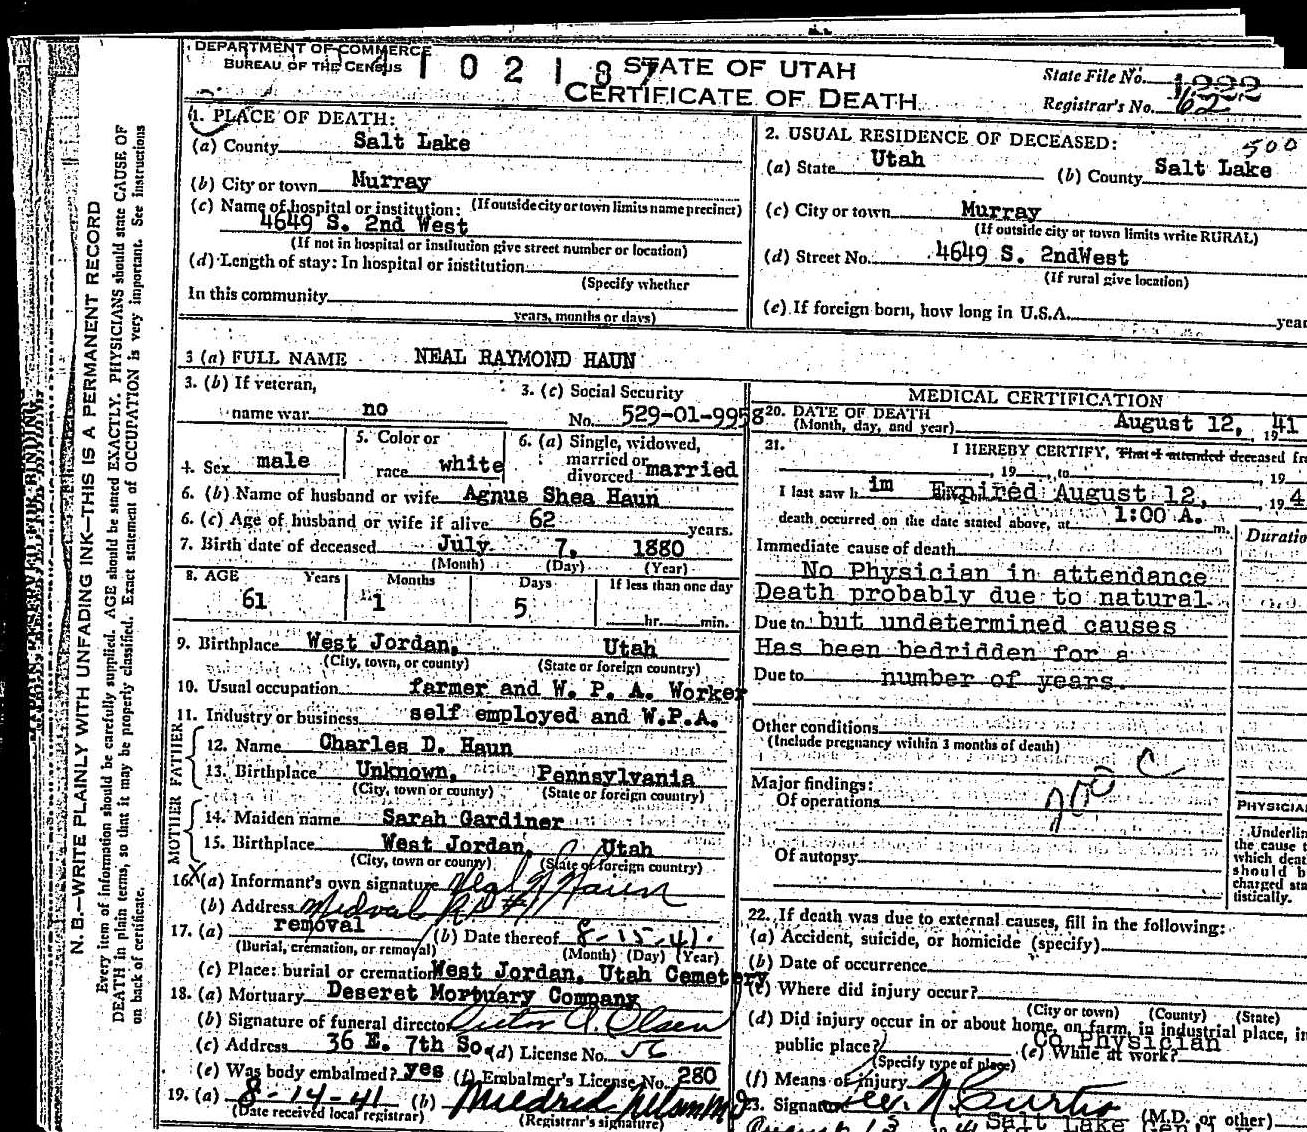 DEPARTMENT OF COMMERCE
BUREAU OF THE CENSUS
1 0 2 1 8 7
STATE OF UTAH
CERTIFICATE OF DEATH
State File No. 1222
Registrar's No. 62
1. PLACE OF DEATH:
(a) County Salt Lake
(b) City or town Murray
(c) Name of hospital or institution: (If outside city or town limits name precinct)
4649 S. 2nd West
(If not in hospital or institution give street number or location)
(d) Length of stay: In hospital or institution
(Specify whether
In this community
years, months or days)
2. USUAL RESIDENCE OF DECEASED:
500
(a) State Utah (b) County Salt Lake
(c) City or town Murray
(If outside city or town limits write RURAL)
(d) Street No. 4649 S. 2ndWest
(If rural give location)
(e) If foreign born, how long in U.S.A. year
3 (a) FULL NAME NEAL RAYMOND HAUN
3. (b) If veteran,
name war no
3. (c) Social Security
No. 529-01-9958
4. Sex male
5. Color or
race white
6. (a) Single, widowed,
married or
divorced married
6. (b) Name of husband or wife Agnus Shea Haun
6. (c) Age of husband or wife if alive 62 years.
7. Birth date of deceased July 7, 1880
(Month) (Day) (Year)
8. AGE Years Months Days If less than one day
61 1 5 hr. min.
9. Birthplace West Jordan, Utah
(City, town, or county) (State or foreign country)
10. Usual occupation farmer and W. P. A. Worker
11. Industry or business self employed and W.P.A.
FATHER
12. Name Charles D. Haun
13. Birthplace Unknown, Pennsylvania
(City, town or county) (State or foreign country)
MOTHER
14. Maiden name Sarah Gardiner
15. Birthplace West Jordan, Utah
(City, town or county) (State or foreign country)
16. (a) Informant's own signature Neal Haun
(b) Address Midval
17. (a) removal (b) Date thereof 8-15-41.
(Burial, cremation, or removal) (Month) (Day) (Year)
(c) Place: burial or cremation West Jordan, Utah Cemetery
18. (a) Mortuary Deseret Mortuary Company
(b) Signature of funeral director Victor A. Olsen
(c) Address 36 E. 7th So. (d) License No. 56
(e) Was body embalmed? yes (f) Embalmer's License No. 280
19. (a) 8-14-41 (b) Mildred Nelson
(Date received local registrar) (Registrar's signature)
MEDICAL CERTIFICATION
20. DATE OF DEATH
(Month, day, and year) August 12, 1941
21. I HEREBY CERTIFY, That I attended deceased fr
, 19 to , 19
I last saw him Expired August 12, , 194
death occurred on the date stated above, at 1:00 A. m.
Duratio
Immediate cause of death
No Physician in attendance
Death probably due to natural
Due to but undetermined causes
Has been bedridden for a
Due to number of years.
Other conditions
(Include pregnancy within 3 months of death)
200 C
Major findings:
Of operations
Of autopsy
PHYSICIA
Underlin
the cause t
which deat
should b
charged sta
tistically.
22. If death was due to external causes, fill in the following:
(a) Accident, suicide, or homicide (specify)
(b) Date of occurrence
(c) Where did injury occur?
(City or town) (County) (State)
(d) Did injury occur in or about home, on farm, in industrial place, in
public place? Co Physician
(Specify type of place) (e) While at work?
(f) Means of injury
23. Signature N Curtis (M.D. or other)
Salt Lake
August 13
N. B.—WRITE PLAINLY WITH UNFADING INK—THIS IS A PERMANENT RECORD
Every item of information should be carefully supplied. AGE should be stated EXACTLY. PHYSICIANS should state CAUSE OF
DEATH in plain terms, so that it may be properly classified. Exact statement of OCCUPATION is very important. See instructions
on back of certificate.